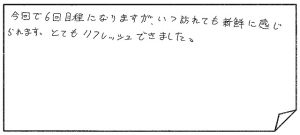 今回で6回目程になりますが、いつ訪れても新鮮に感じ
られます。とてもリフレッシュできました。